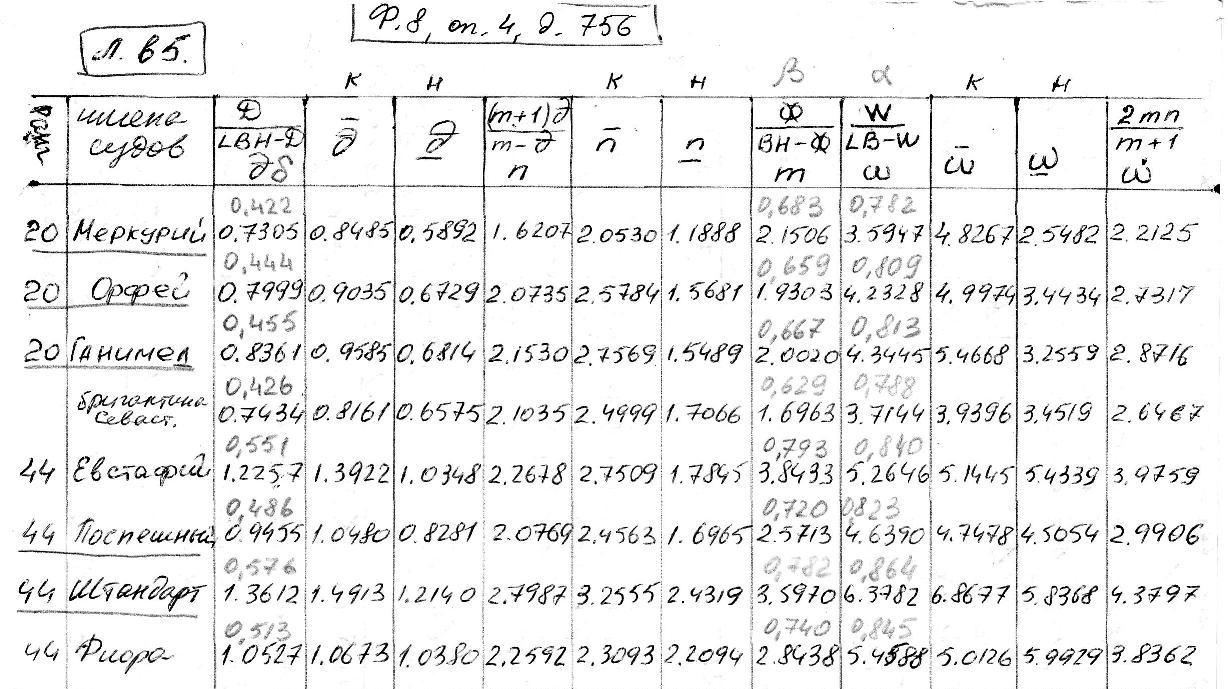 Ф.8, оп. 4, д. 756
Л. 65.
К Н К Н β α К Н
имена судов Д/LBH-Д д δ д̄ д̲ (m+1)д/m-д n n̄ n̲ Ф/BH-Ф m W/LB-W ω ω̄ ω̲ 2mn/m+1 ω̇
0,422 0,683 0,782
20 Меркурий 0.7305 0.8485 0.5892 1.6207 2.0530 1.1888 2.1506 3.5947 4.8267 2.5482 2.2125
0,444 0,659 0,809
20 Орфей 0.7999 0.9035 0.6729 2.0735 2.5784 1.5681 1.9303 4.2328 4.9974 3.4434 2.7317
0,455 0,667 0,813
20 Ганимед 0.8361 0.9585 0.6814 2.1530 2.7569 1.5489 2.0020 4.3445 5.4668 3.2559 2.8716
0,426 0,629 0,788
бригантина Севаст. 0.7434 0.8161 0.6575 2.1035 2.4999 1.7066 1.6963 3.7144 3.9396 3.4519 2.6467
0,551 0,793 0,840
44 Евстафий 1.2257 1.3922 1.0348 2.2678 2.7509 1.7845 3.8433 5.2646 5.1445 5.4339 3.9759
0,486 0,720 0823
44 Поспешный 0.9455 1.0480 0.8281 2.0769 2.4563 1.6965 2.5713 4.6390 4.7478 4.5054 2.9906
0,576 0,782 0,864
44 Штандарт 1.3612 1.4913 1.2140 2.7987 3.2555 2.4319 3.5970 6.3782 6.8677 5.8368 4.3797
0,513 0,740 0,845
44 Флора 1.0527 1.0673 1.0380 2.2592 2.3093 2.2094 2.8438 5.4588 5.0126 5.9929 3.8362